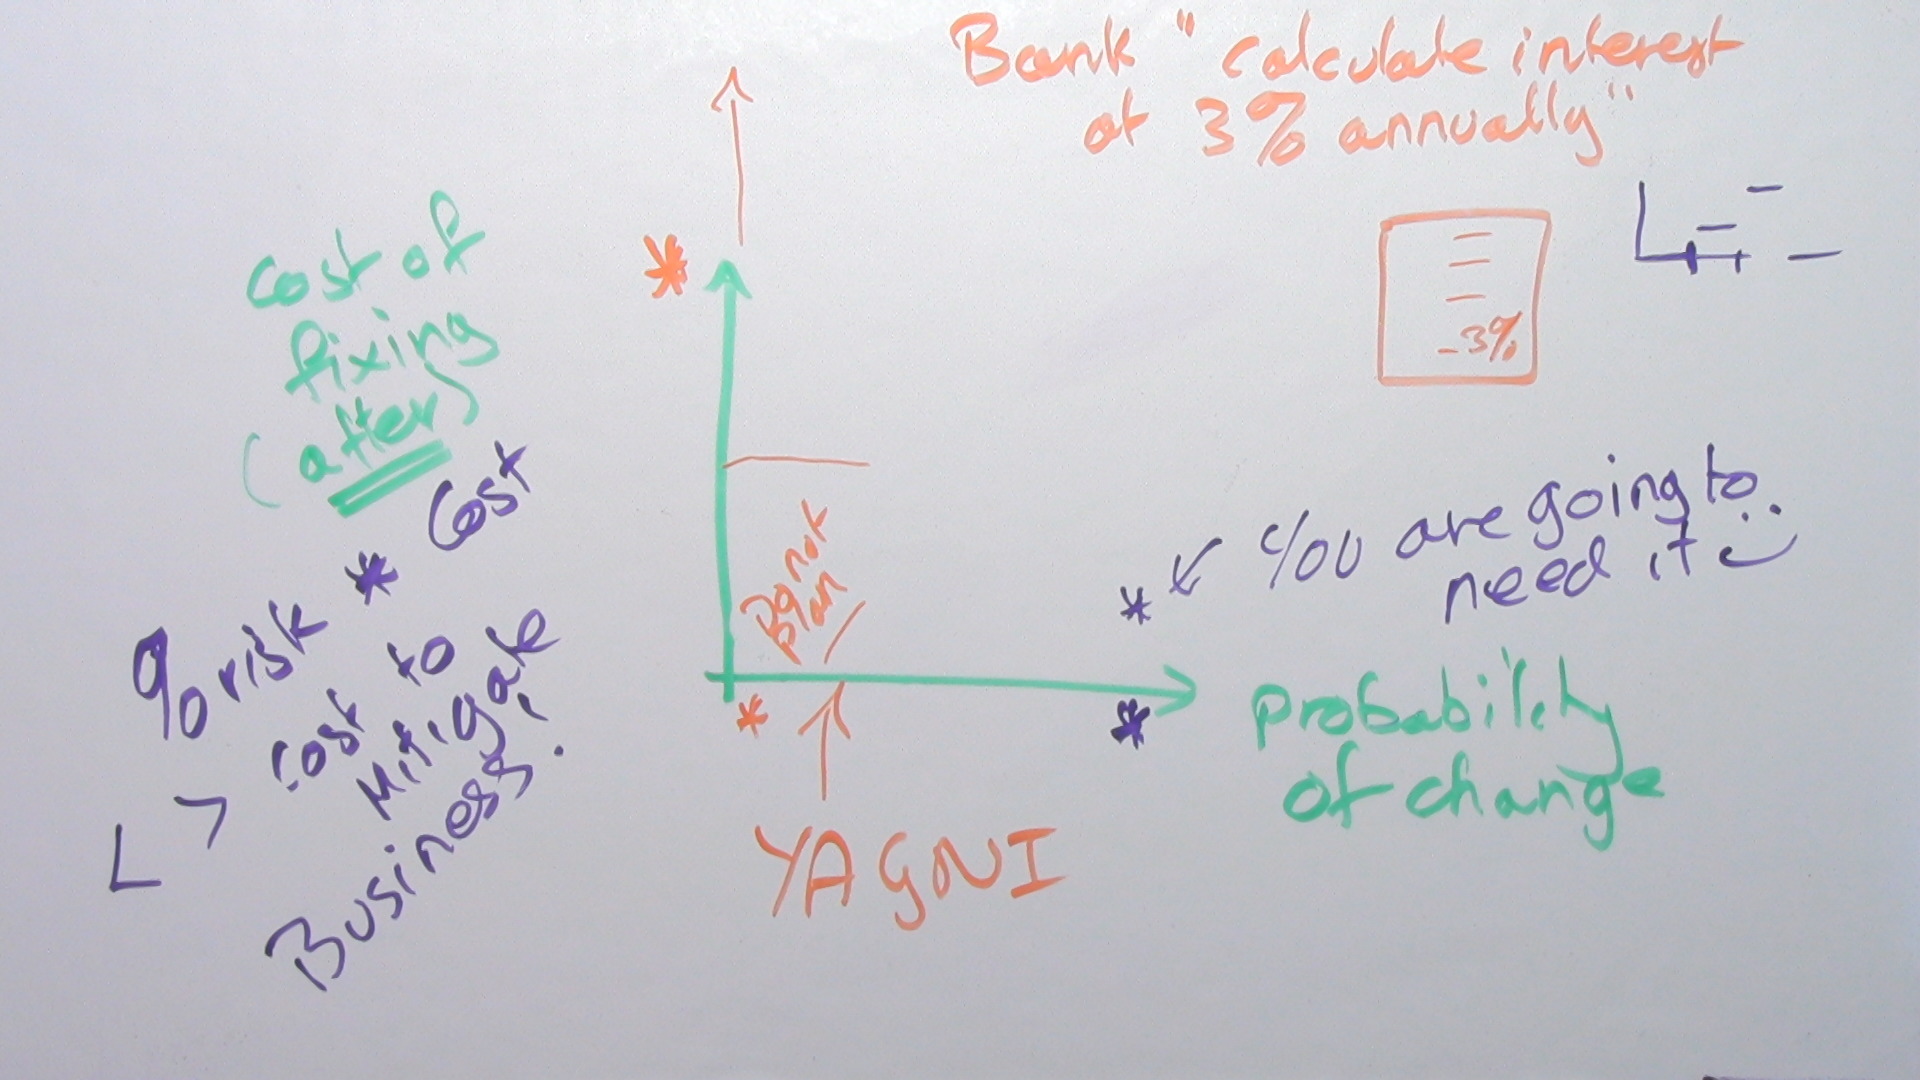 Bank "calculate interest
at 3% annually"
-3%
cost of
fixing
(after)
% risk * Cost
> cost to
Mitigate
Business!
Do not
plan
YAGNI
* You are going to
need it
probability
of change